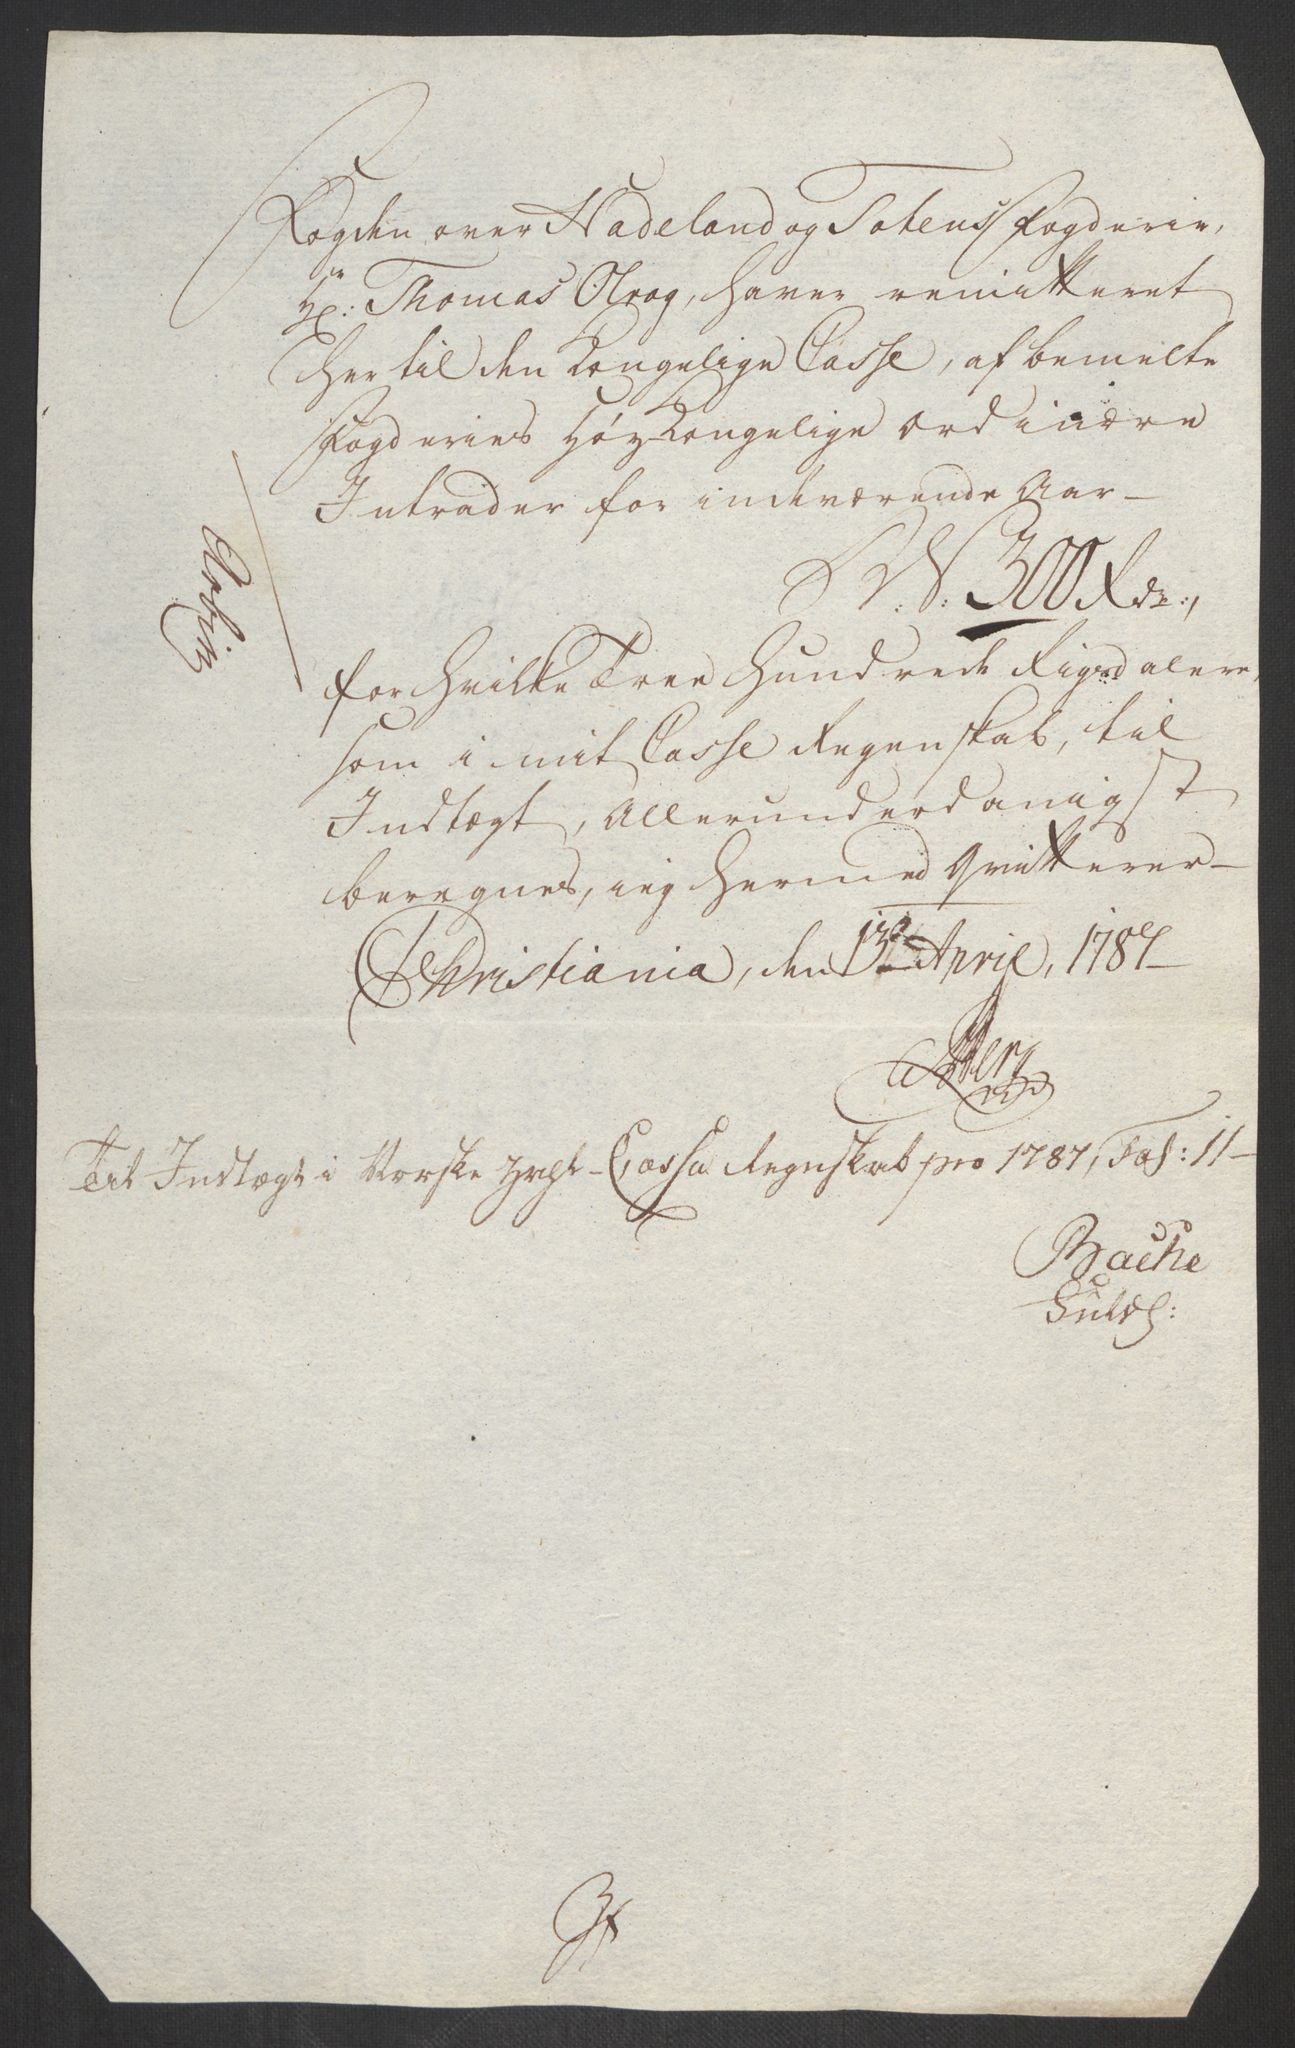 Fogden over Hadeland og Totens Fogderie,
Hr: Thomas Olrog, haver remitteret
her til den Kongelige Casse, af bemelte
Fogderies Høy Kongelige ordinære
Intrader for indeværende Aar —
300 Rdr:,
for hvilke Tree Hundrede Rigsdalere,
som i mit Casse Regenskab, til
Indtægt, Allerunderdanigst
beregnes, ieg hermed Qvitterer —
Christiania, den 13de April, 1787 —
Til Indtægt i Norske Cassa Regenskab pro 1787, Fol: 11 —
Bache